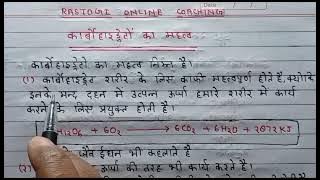 RASTOGI ONLINE COACHING
कार्बोहाइड्रेटों का महत्व
कार्बोहाइड्रेटों का महत्व निम्न है।
(1) कार्बोहाइड्रेट शरीर के लिए काफी महत्वपूर्ण होते हैं, क्योंकि
इनके मन्द दहन में उत्पन्न ऊर्जा हमारे शरीर में कार्य
करने के लिए प्रयुक्त होती है।
H12O6 + 6O2 → 6CO2 + 6H2O + 2872 KJ
जैव ईंधन भी कहलाते हैं
(2) ऊर्जा की तरह भी कार्य करते हैं।